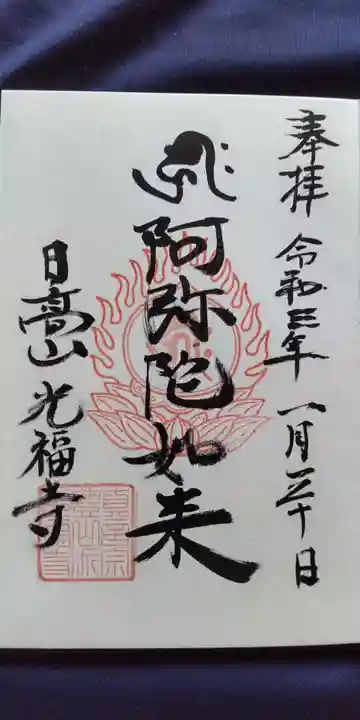 奉拝 令和三年 一月三十日
阿弥陀如来
日高山 光福寺